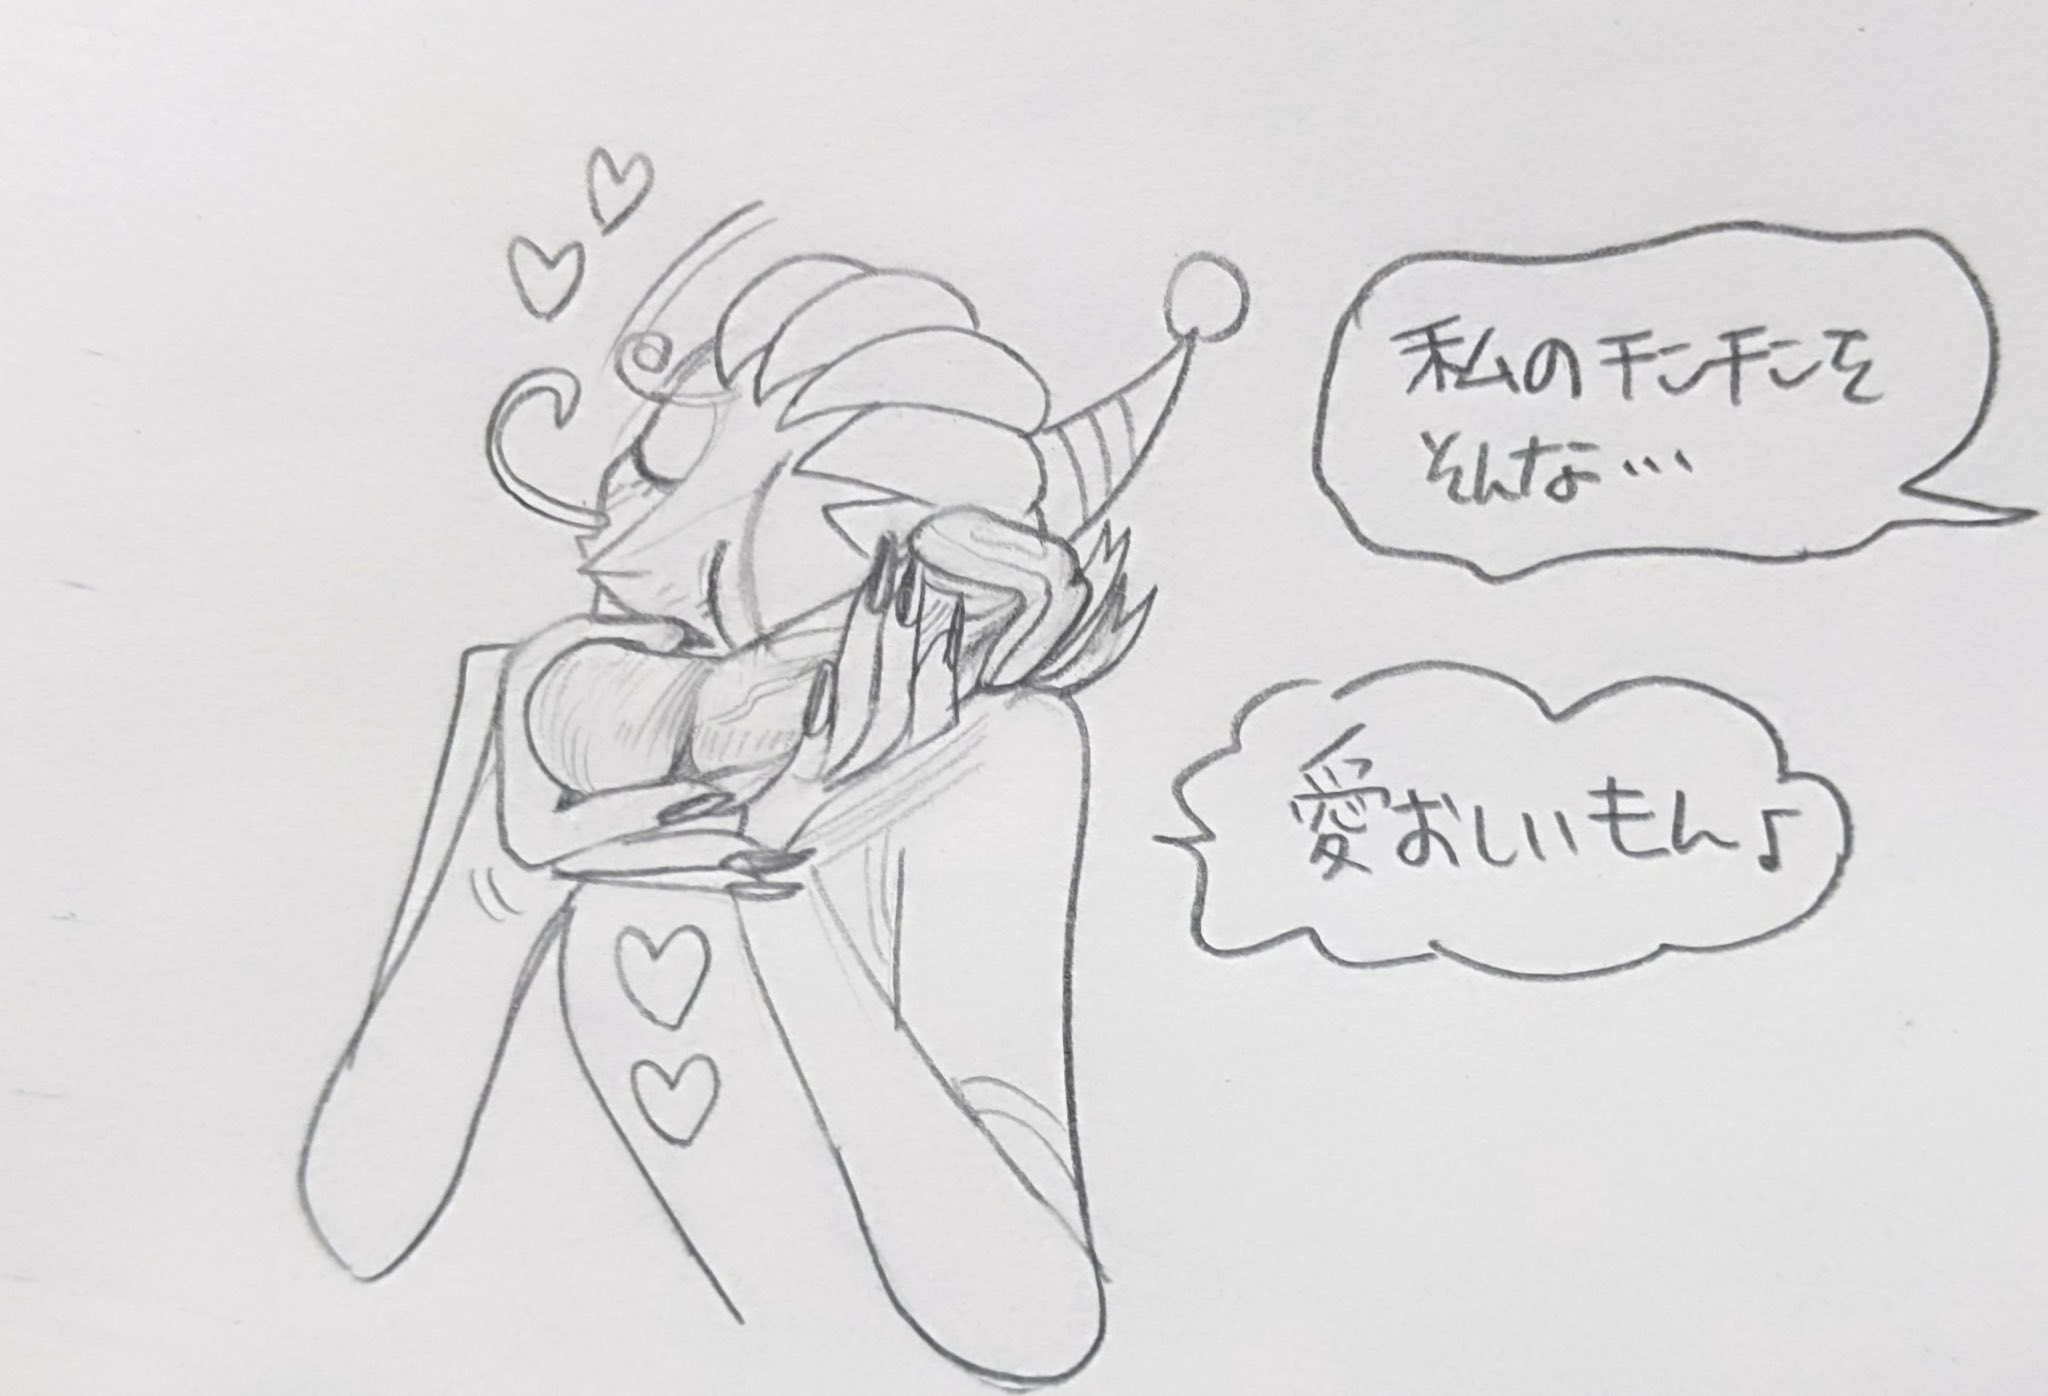 私のチンチンを
そんな…
愛おしいもん♪